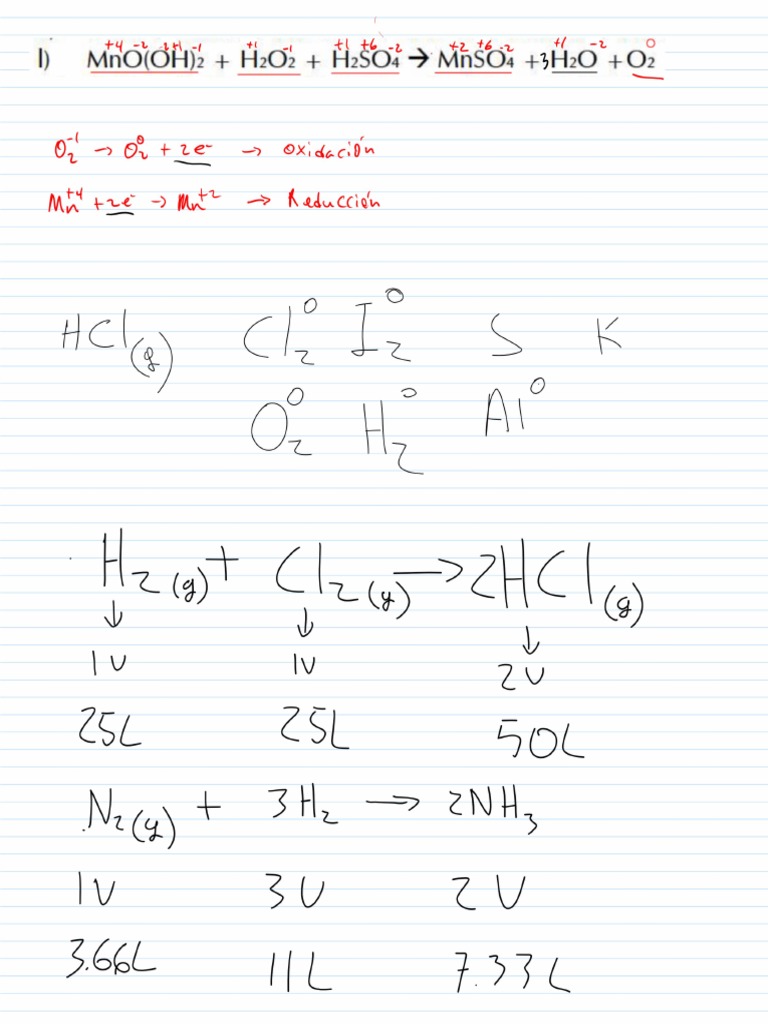 +4 -2 -2+1 -1 +1 -1 +1 +6 -2 +2 +6 -2 +1 -2 0
l) MnO(OH)2 + H2O2 + H2SO4 → MnSO4 +3H2O + O2
O2-1 → O20 + 2e- → Oxidación
Mn+4 + 2e- → Mn+2 → Reducción
HCl(g) Cl20 I20 S K
O20 H20 Al0
H2(g) + Cl2(g) → 2HCl(g)
↓ ↓ ↓
1V 1V 2V
25L 25L 50L
N2(g) + 3H2 → 2NH3
1V 3V 2V
3.66L 11L 7.33L